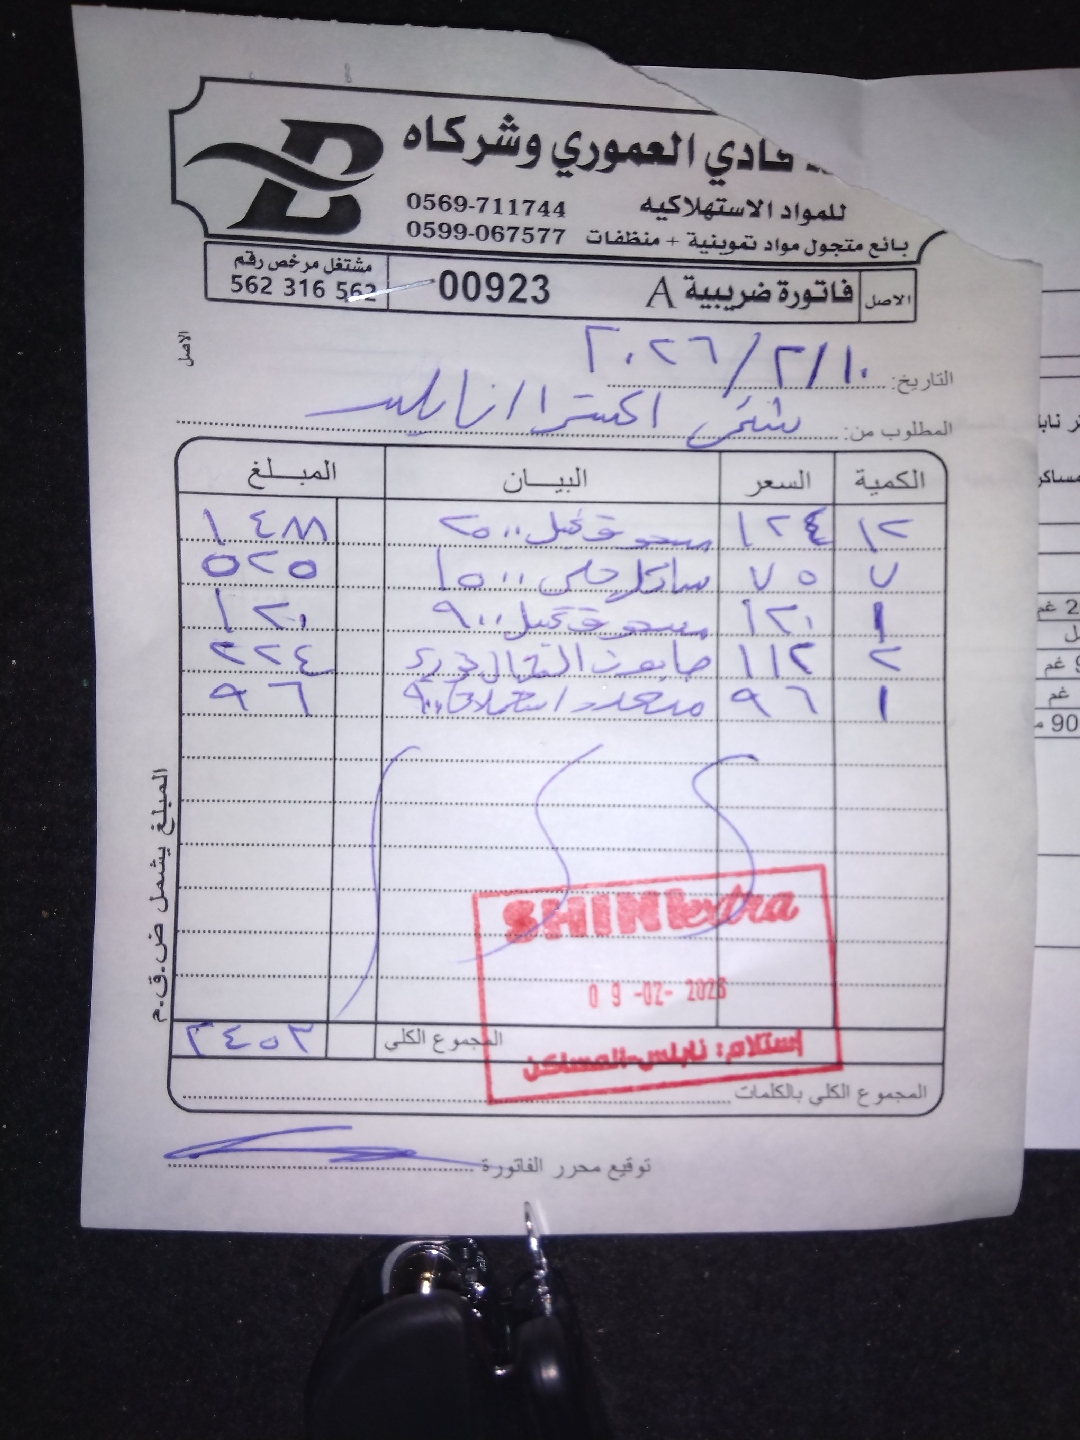 فادي العموري وشركاه
للمواد الاستهلاكيه 0569-711744
بائع متجول مواد تموينية + منظفات 0599-067577
الاصل فاتورة ضريبية A 00923 مشتغل مرخص رقم 562 316 562
الاصل
التاريخ: ٢٠٢٦/٢/١٠
المطلوب من: شني اكسترا / نابلس
الكمية السعر البيان المبلغ
١٢ ١٢٤ مسحوق غسيل ٢٠٠٠ ١٤٨٨
٧ ٧٥ سائل جلي ١٥٠٠ ٥٢٥
١ ١٢٠ مسحوق غسيل ٩٠٠ ١٢٠
٢ ١١٢ صابون ٢٢٤
١ ٩٦ متعدد استعمالات ٩٠٠ ٩٦
المبلغ يشمل ض.ق.م
SHINIextra
09-02-2026
إستلام: نابلس-المساكن
المجموع الكلي ٢٤٥٣
المجموع الكلي بالكلمات
توقيع محرر الفاتورة
ر نابل
مساكر
2 غم
ل
9 غم
غم
90 م